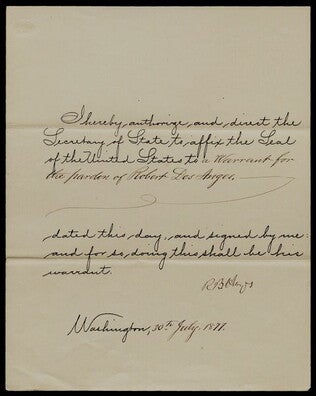 I hereby authorize and direct the
Secretary of State to affix the Seal
of the United States to a Warrant for
the pardon of Robert Des Anges.
dated this day, and signed by me:
and for so doing this shall be his
warrant.
R B Hayes
Washington, 30th July. 1877.